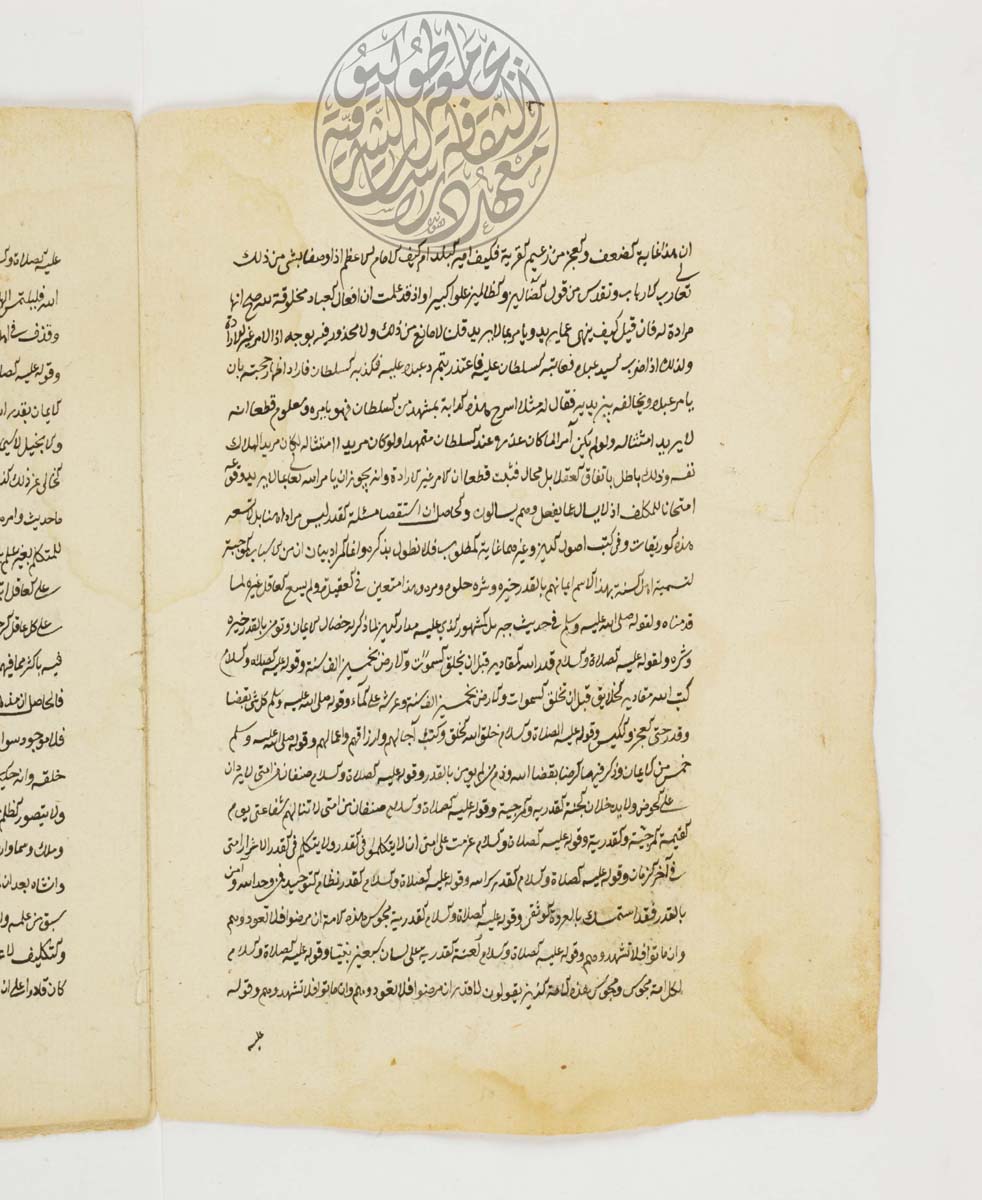 ان هذا غاية الضعف والعجز من زعيم القرية فكيف امير البلد ام كيف الامام الاعظم اذا وصف بشئ من ذلك
تعالى رب الارباب وتقدس من قول الضالين والظالمين علوا كبيرا واذ قد علمت ان افعال العباد مخلوقة لله صح انها
مرادة له فان قيل كيف ينهى عما يريد ويامر بما لا يريد قلنا لا مانع من ذلك ولا محذور فيه بوجه اذ الامر غير الارادة
ولذلك اذا ضرب السيد عبده فعاتبه السلطان عليه فاعتذر بتمرد عبده عليه فكذبه السلطان فاراد اظهار حجته بان
يامر عبده ويخالفه بين يديه فقال له مثلا اسرج هذه الدابة بمشهد من السلطان فهو يامره ومعلوم قطعا انه
لا يريد امتثاله ولو لم يكن آمرا لما كان عذره عند السلطان متمهدا ولو كان مريدا امتثاله لكان مريدا لهلاك
نفسه وذلك باطل باتفاق العقلا بل محال فثبت قطعا ان الامر غير الارادة وانه يجوز ان يامر الله تعالى بما لا يريد وقوعه
امتحانا للمكلف اذ لا يسال عما يفعل وهم يسالون والحاصل ان استقصا مسئلة القدر ليس مرادا هنا بل لا تسعه
هذه الوريقات وفي كتب اصول الدين وغيره ما غاية المطلوب فلا نطول بذكره وانما المراد بيان ان من الاسباب الموجبة
لتسمية اهل السنة بهذا الاسم ايمانهم بالقدر خيره وشره حلوه ومره وهذا متعين في العقيدة ولم يسع العاقل غيره لما
قدمناه ولقوله صلى الله عليه وسلم في حديث جبريل المشهور الذي عليه مدار الدين لما ذكر له خصال الايمان وتومن بالقدر خيره
وشره ولقوله عليه الصلاة والسلام قدر الله المقادير قبل ان يخلق السموات والارض بخمسين الف سنة وقوله عليه الصلاة والسلام
كتب الله مقادير الخلايق قبل ان تخلق السموات والارض بخمسين الف سنة وعرشه على الماء وقوله صلى الله عليه وسلم كل شئ بقضا
وقدر حتى العجز والكيس وقوله عليه الصلاة والسلام خلق الله الخلق وكتب آجالهم وارزاقهم واعمالهم وقوله صلى الله عليه وسلم
خمس من الايمان وذكر فيها الرضا بقضا الله وذم من لم يومن بالقدر وقوله عليه الصلاة والسلام صنفان من امتي لا يردان
على الحوض ولا يدخلان الجنة القدرية والمرجية وقوله عليه الصلاة والسلام صنفان من امتي لا تنالهم شفاعتي يوم
القيمة المرجئة والقدرية وقوله عليه الصلاة والسلام عزمت على امتي ان لا يتكلموا في القدر ولا يتكلم في القدر الا شرار امتي
في آخر الزمان وقوله عليه الصلاة والسلام القدر سر الله وقوله عليه الصلاة والسلام القدر نظام التوحيد فمن وحد الله وآمن
بالقدر فقد استمسك بالعروة الوثقى وقوله عليه الصلاة والسلام القدرية مجوس هذه الامة ان مرضوا فلا تعودوهم
وان ماتوا فلا تشهدوهم وقوله عليه الصلاة والسلام لعنت القدرية على لسان سبعين نبيا وقوله عليه الصلاة والسلام
لكل امة مجوس ومجوس هذه الامة الذين يقولون لا قدر ان مرضوا فلا تعودوهم وان ماتوا فلا تشهدوهم وقوله
عليه